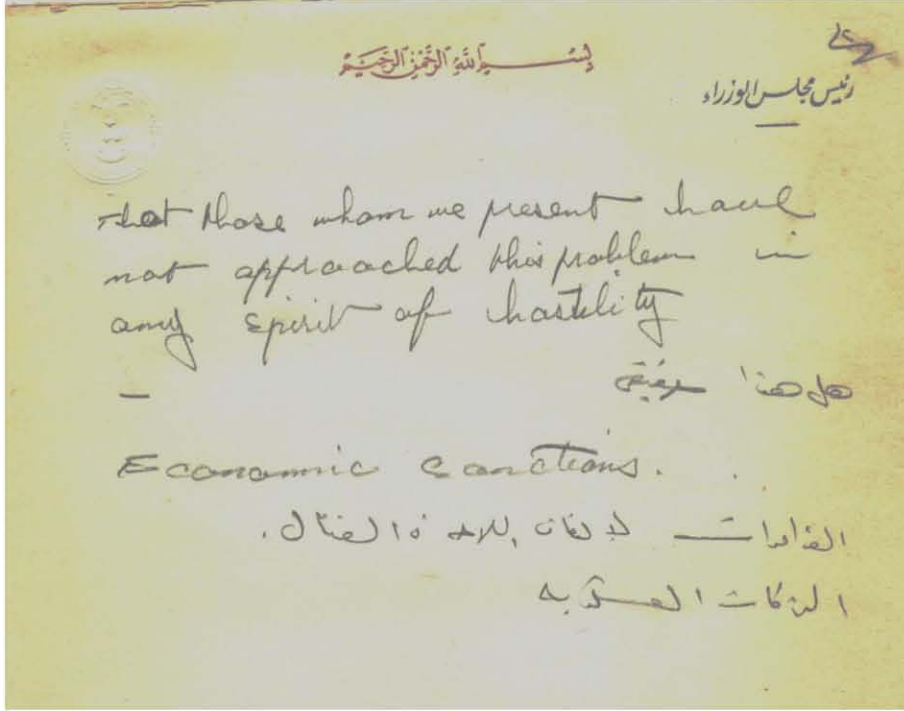 بسم الله الرحمن الرحيم
رئيس مجلس الوزراء
that those whom we present have
not approached this problem in
any spirit of hostility
هل هذا
Economic Sanctions.
القرارات القتال.
العسكرية